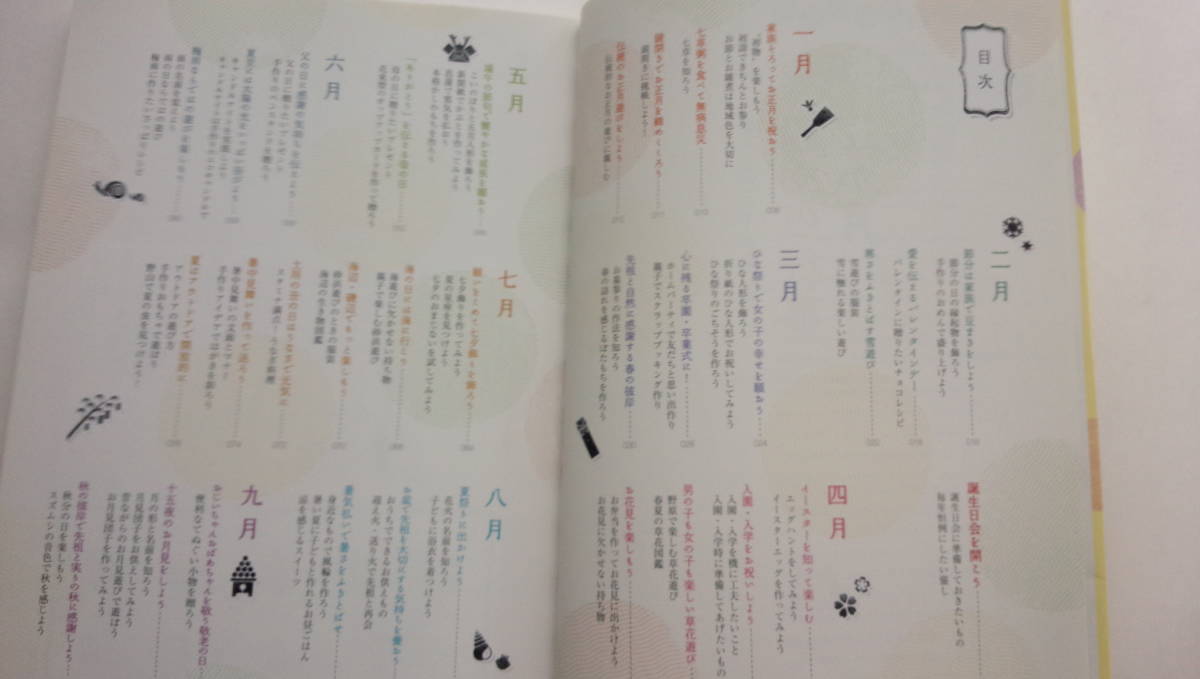 目次
一月
家族そろってお正月を祝おう
“初物”を楽しもう
初詣できちんとお参り
お節とお雑煮は地域色を大切に
七草粥を食べて無病息災
七草を知ろう
鏡開きでお正月を締めくくろう
鏡開きに挑戦しよう!
伝統のお正月遊びをしよう
伝統的なお正月の遊びに親しむ
二月
節分は家族で豆まきをしよう
節分の日の縁起物を飾ろう
手作りのおめんで盛り上げよう
愛を伝えるバレンタインデー
バレンタインに贈りたいチョコレシピ
寒さをふきとばす雪遊び
雪遊びの服装
雪に触れる楽しい遊び
三月
ひな祭りで女の子の幸せを願おう
ひな人形を飾ろう
折り紙のひな人形でお祝いしてみよう
ひな祭りのごちそうを作ろう
心に残る卒園・卒業式に!
ホームパーティで友だちと思い出作り
親子でスクラップブッキング作り
先祖と自然に感謝する春の彼岸
お墓参りの作法を知ろう
春の訪れを感じるぼたもちを作ろう
誕生日会を開こう
誕生日会に準備しておきたいもの
毎年恒例にしたい催し
四月
イースターを知って楽しむ
エッグハントをしてみよう
イースターエッグを作ってみよう
入園・入学をお祝いしよう
入園・入学を機に工夫したいこと
入園・入学時に準備してあげたいもの
男の子も女の子も楽しい草花遊び
野原で楽しむ草花遊び
春夏の草花図鑑
お花見を楽しもう
お弁当を作ってお花見に出かけよう
お花見に欠かせない持ち物
五月
端午の節句で健やかな成長を願おう
こいのぼりと五月人形を飾ろう
新聞紙でかぶとを作ってみよう
菖蒲で邪気を払おう
本格かしわもちを作ろう
「ありがとう」を伝える母の日
母の日に贈りたいプレゼント
六月
父の日に感謝の気持ちを伝えよう
父の日に贈りたいプレゼント
梅雨ならではの遊びを楽しもう
雨の名前を覚えよう
雨の日ならではの遊び
七月
願いをこめて七夕飾りを飾ろう
七夕飾りを作ってみよう
夏の星座を見つけよう
七夕のおまじないを試してみよう
海の日には海へ行こう
海遊びに欠かせない持ち物
親子で楽しむ砂浜遊び
海辺・磯辺でもっと楽しもう
磯浜遊びのときの服装
海辺の生き物図鑑
土用の丑の日はうなぎで元気に
スタミナ満点!うなぎ料理
暑中見舞いを作って送ろう
暑中見舞いの文面とマナー
手作りアイデアではがきを彩ろう
夏はアウトドアで開放的に
アウトドアの遊び
手作りおもちゃで遊ぼう
野山で夏の虫を見つけよう!
八月
夏祭りに出かけよう
花火の名前を知ろう
子どもに浴衣を着つけよう
お盆で先祖を大切にする気持ちを養おう
おうちでできるお供えもの
迎え火・送り火で先祖と再会
暑気払いで暑さをふきとばせ
身近なもので風輪を作ろう
暑い夏に子どもと作れるお昼ごはん
涼を感じるスイーツ
九月
おじいちゃんおばあちゃんを敬う敬老の日
便利なてぬぐい小物を贈ろう
十五夜のお月見をしよう
月の形と名前を知ろう
月見団子をお供えしてみよう
昔ながらのお月見遊びで遊ぼう
お月見団子を作ってみよう
秋の彼岸で先祖と実りの秋に感謝しよう
秋分の日を楽しもう
スズムシの音色で秋を感じよう